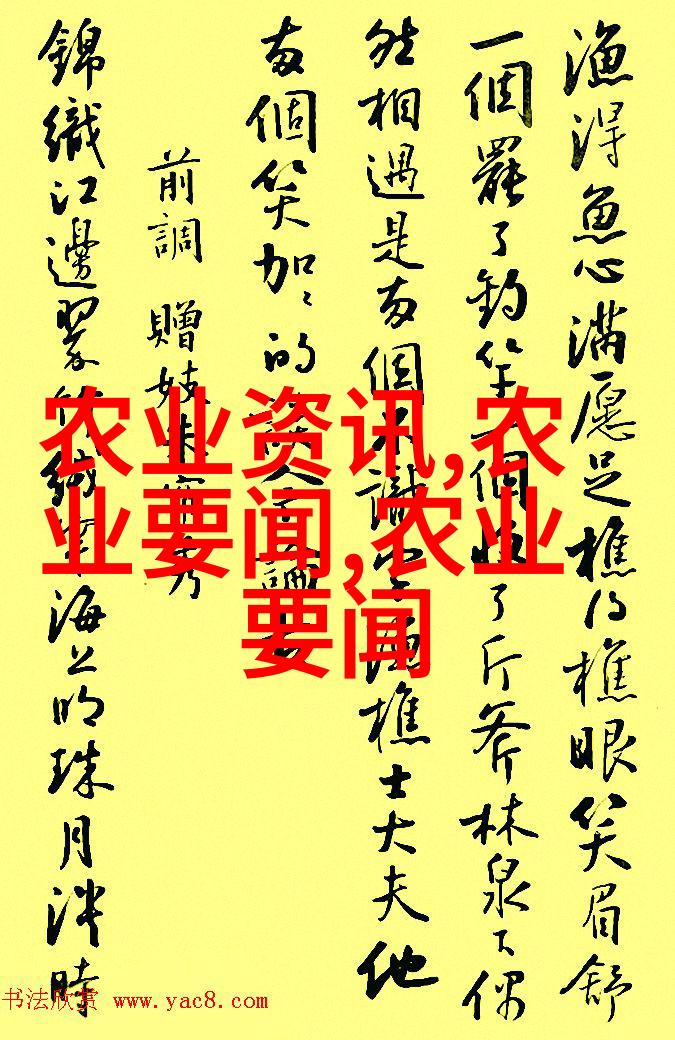 漁得魚心滿愿足樵得樵眼笑眉舒
一個罷了釣竿一個收了斤斧林泉下偶
然相遇是两個不識字漁樵士大夫他
两個笑加加的談今論古
前調 贈妓朱簾秀
錦織江邊翠竹絨穿海上明珠月淡時
农业资讯,农
业要闻,农业
要闻
书法欣赏 www.yac8.com